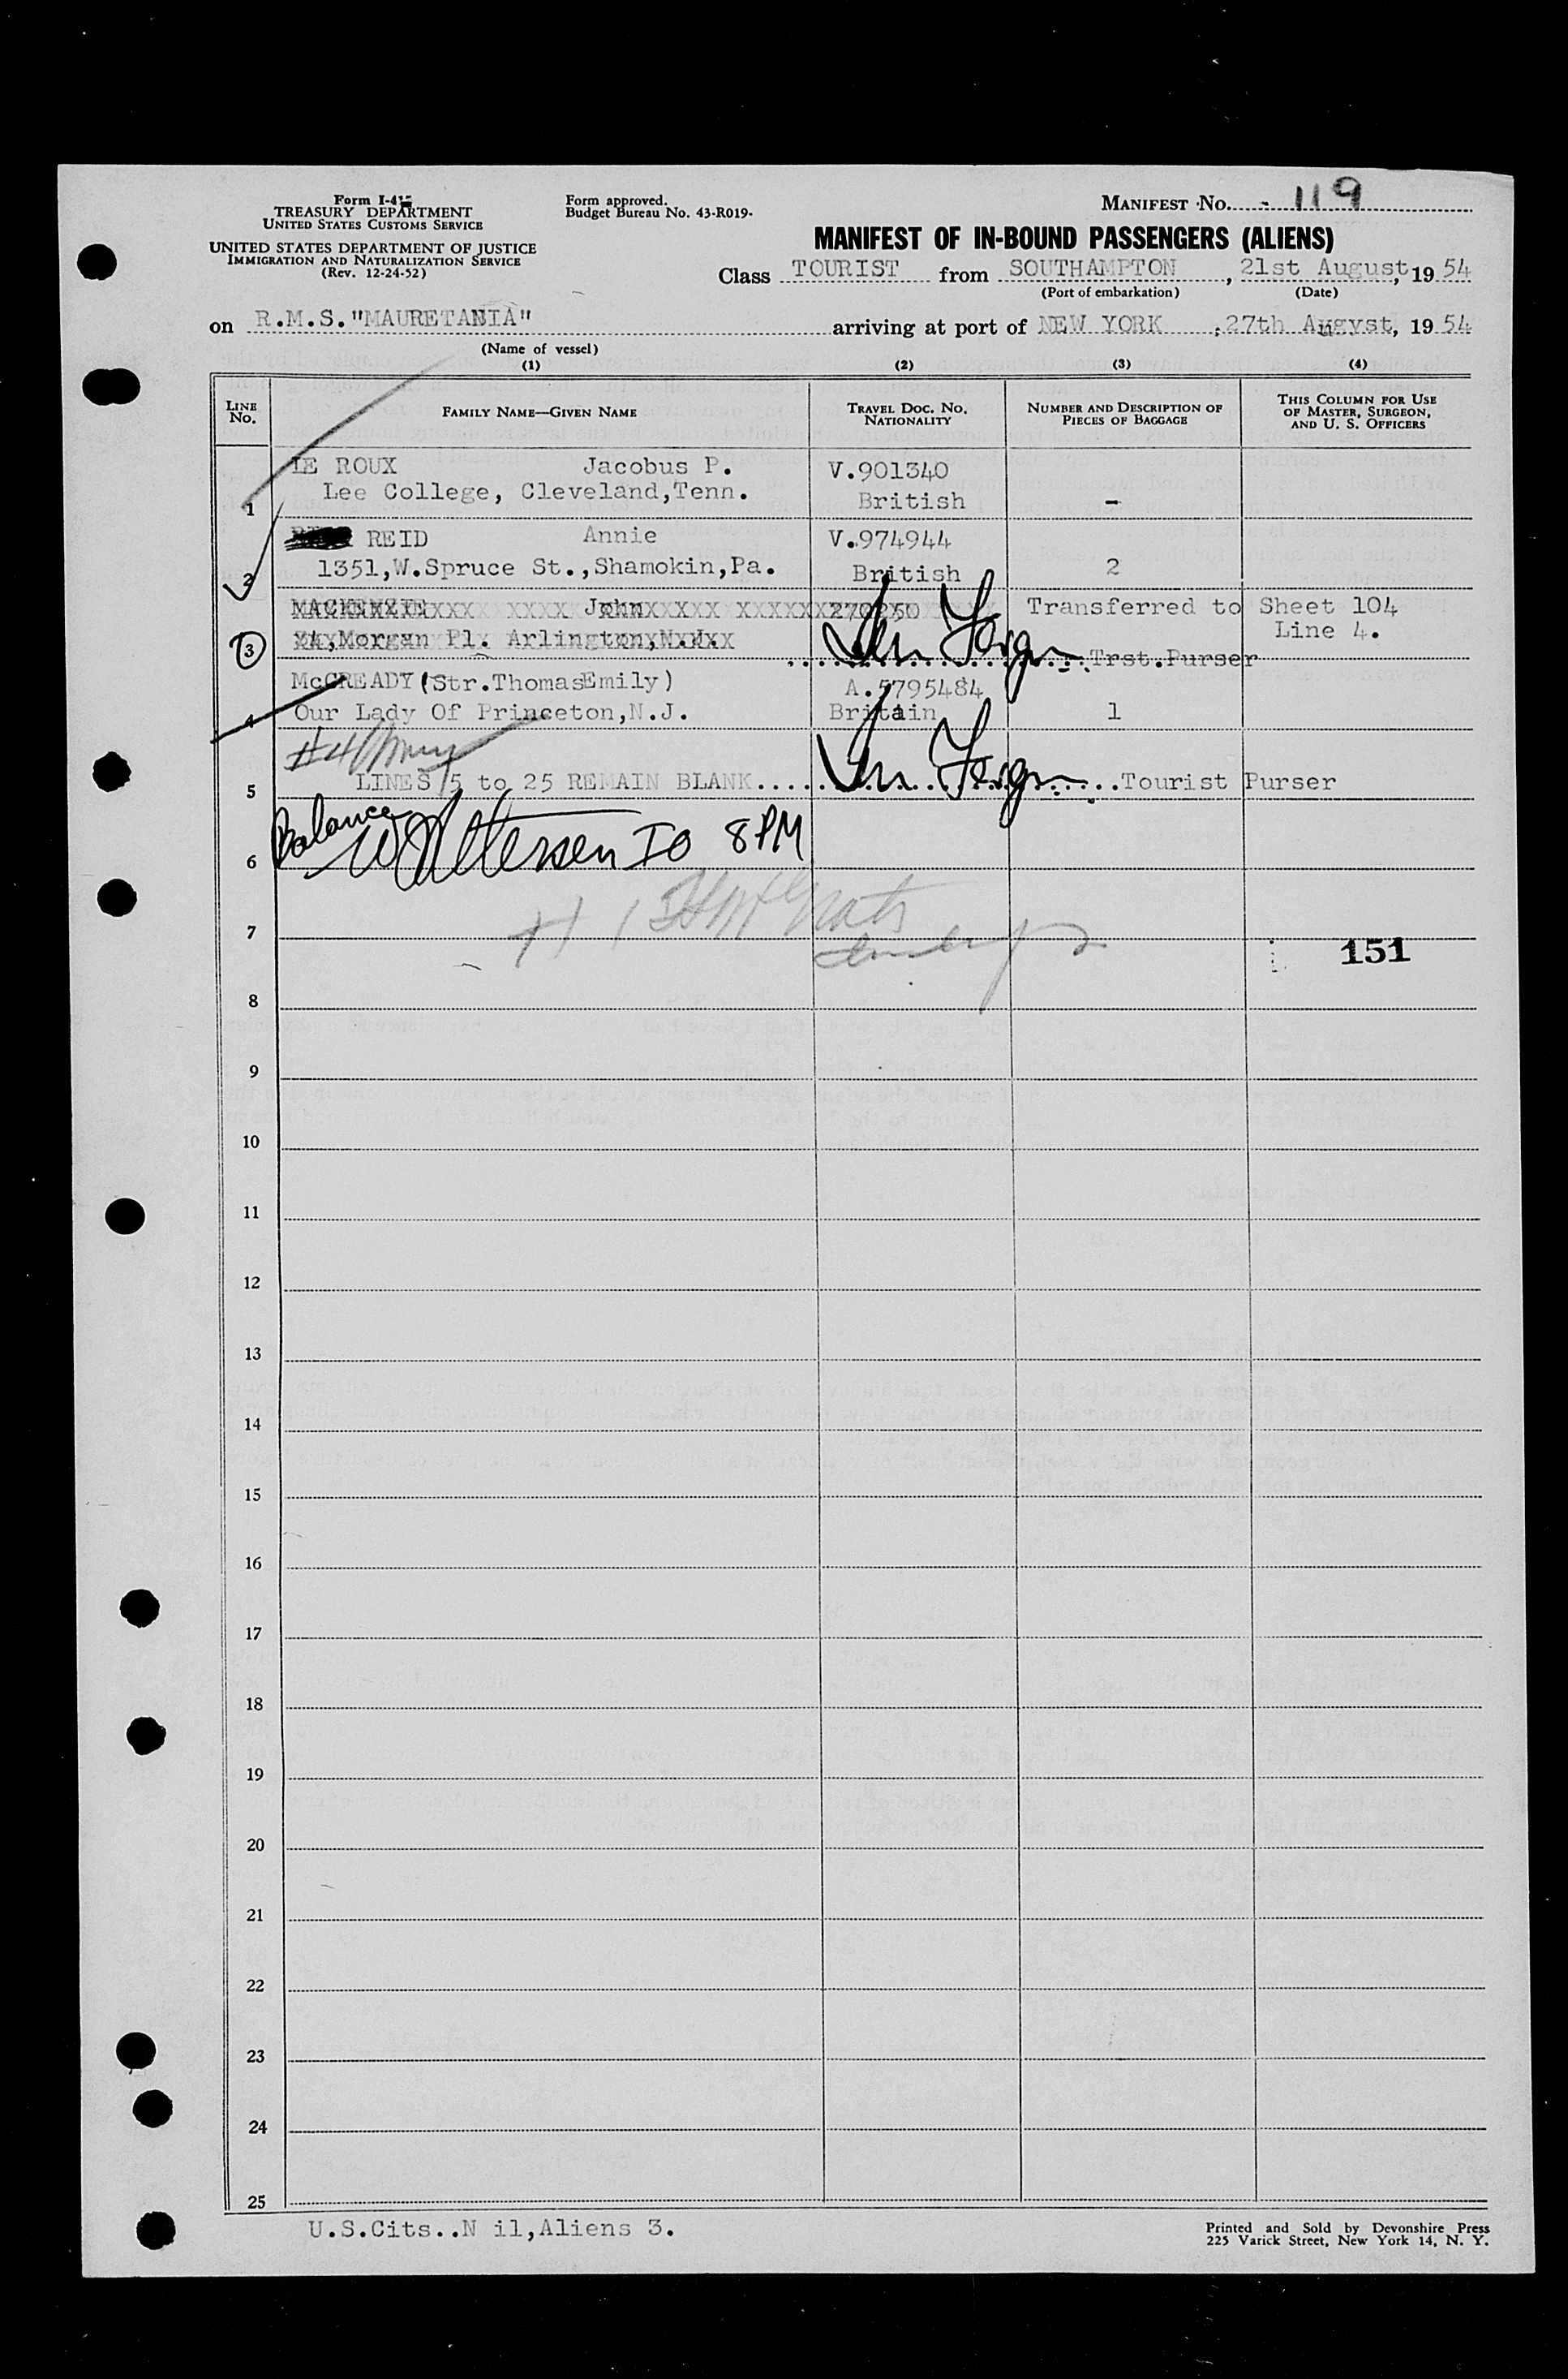 Form I-415
TREASURY DEPARTMENT
UNITED STATES CUSTOMS SERVICE
UNITED STATES DEPARTMENT OF JUSTICE
IMMIGRATION AND NATURALIZATION SERVICE
(Rev. 12-24-52)
Form approved.
Budget Bureau No. 43-R019-
MANIFEST NO. - 119
MANIFEST OF IN-BOUND PASSENGERS (ALIENS)
Class TOURIST from SOUTHAMPTON, 21st August, 19 54
(Port of embarkation) (Date)
on R.M.S."MAURETANIA" arriving at port of NEW YORK, 27th Augyst, 19 54
(Name of vessel)
(1) (2) (3) (4)
LINE NO. FAMILY NAME—GIVEN NAME TRAVEL DOC. NO. NATIONALITY NUMBER AND DESCRIPTION OF PIECES OF BAGGAGE THIS COLUMN FOR USE OF MASTER, SURGEON, AND U. S. OFFICERS
LE ROUX Jacobus P. V.901340
1 Lee College, Cleveland,Tenn. British -
REID Annie V.974944
2 1351,W.Spruce St.,Shamokin,Pa. British 2
MACKENZIE John 270250 Transferred to Sheet 104
3 Morgan Pl. Arlington,N.J. Line 4.
Trst.Purser
McCREADY (Str.Thomas Emily) A.5795484
4 Our Lady Of Princeton,N.J. Britain 1
5 LINES 5 to 25 REMAIN BLANK.....Tourist Purser
Balance
6 IO 8 PM
7
151
8
9
10
11
12
13
14
15
16
17
18
19
20
21
22
23
24
25
U.S.Cits..N il,Aliens 3.
Printed and Sold by Devonshire Press
225 Varick Street, New York 14, N. Y.